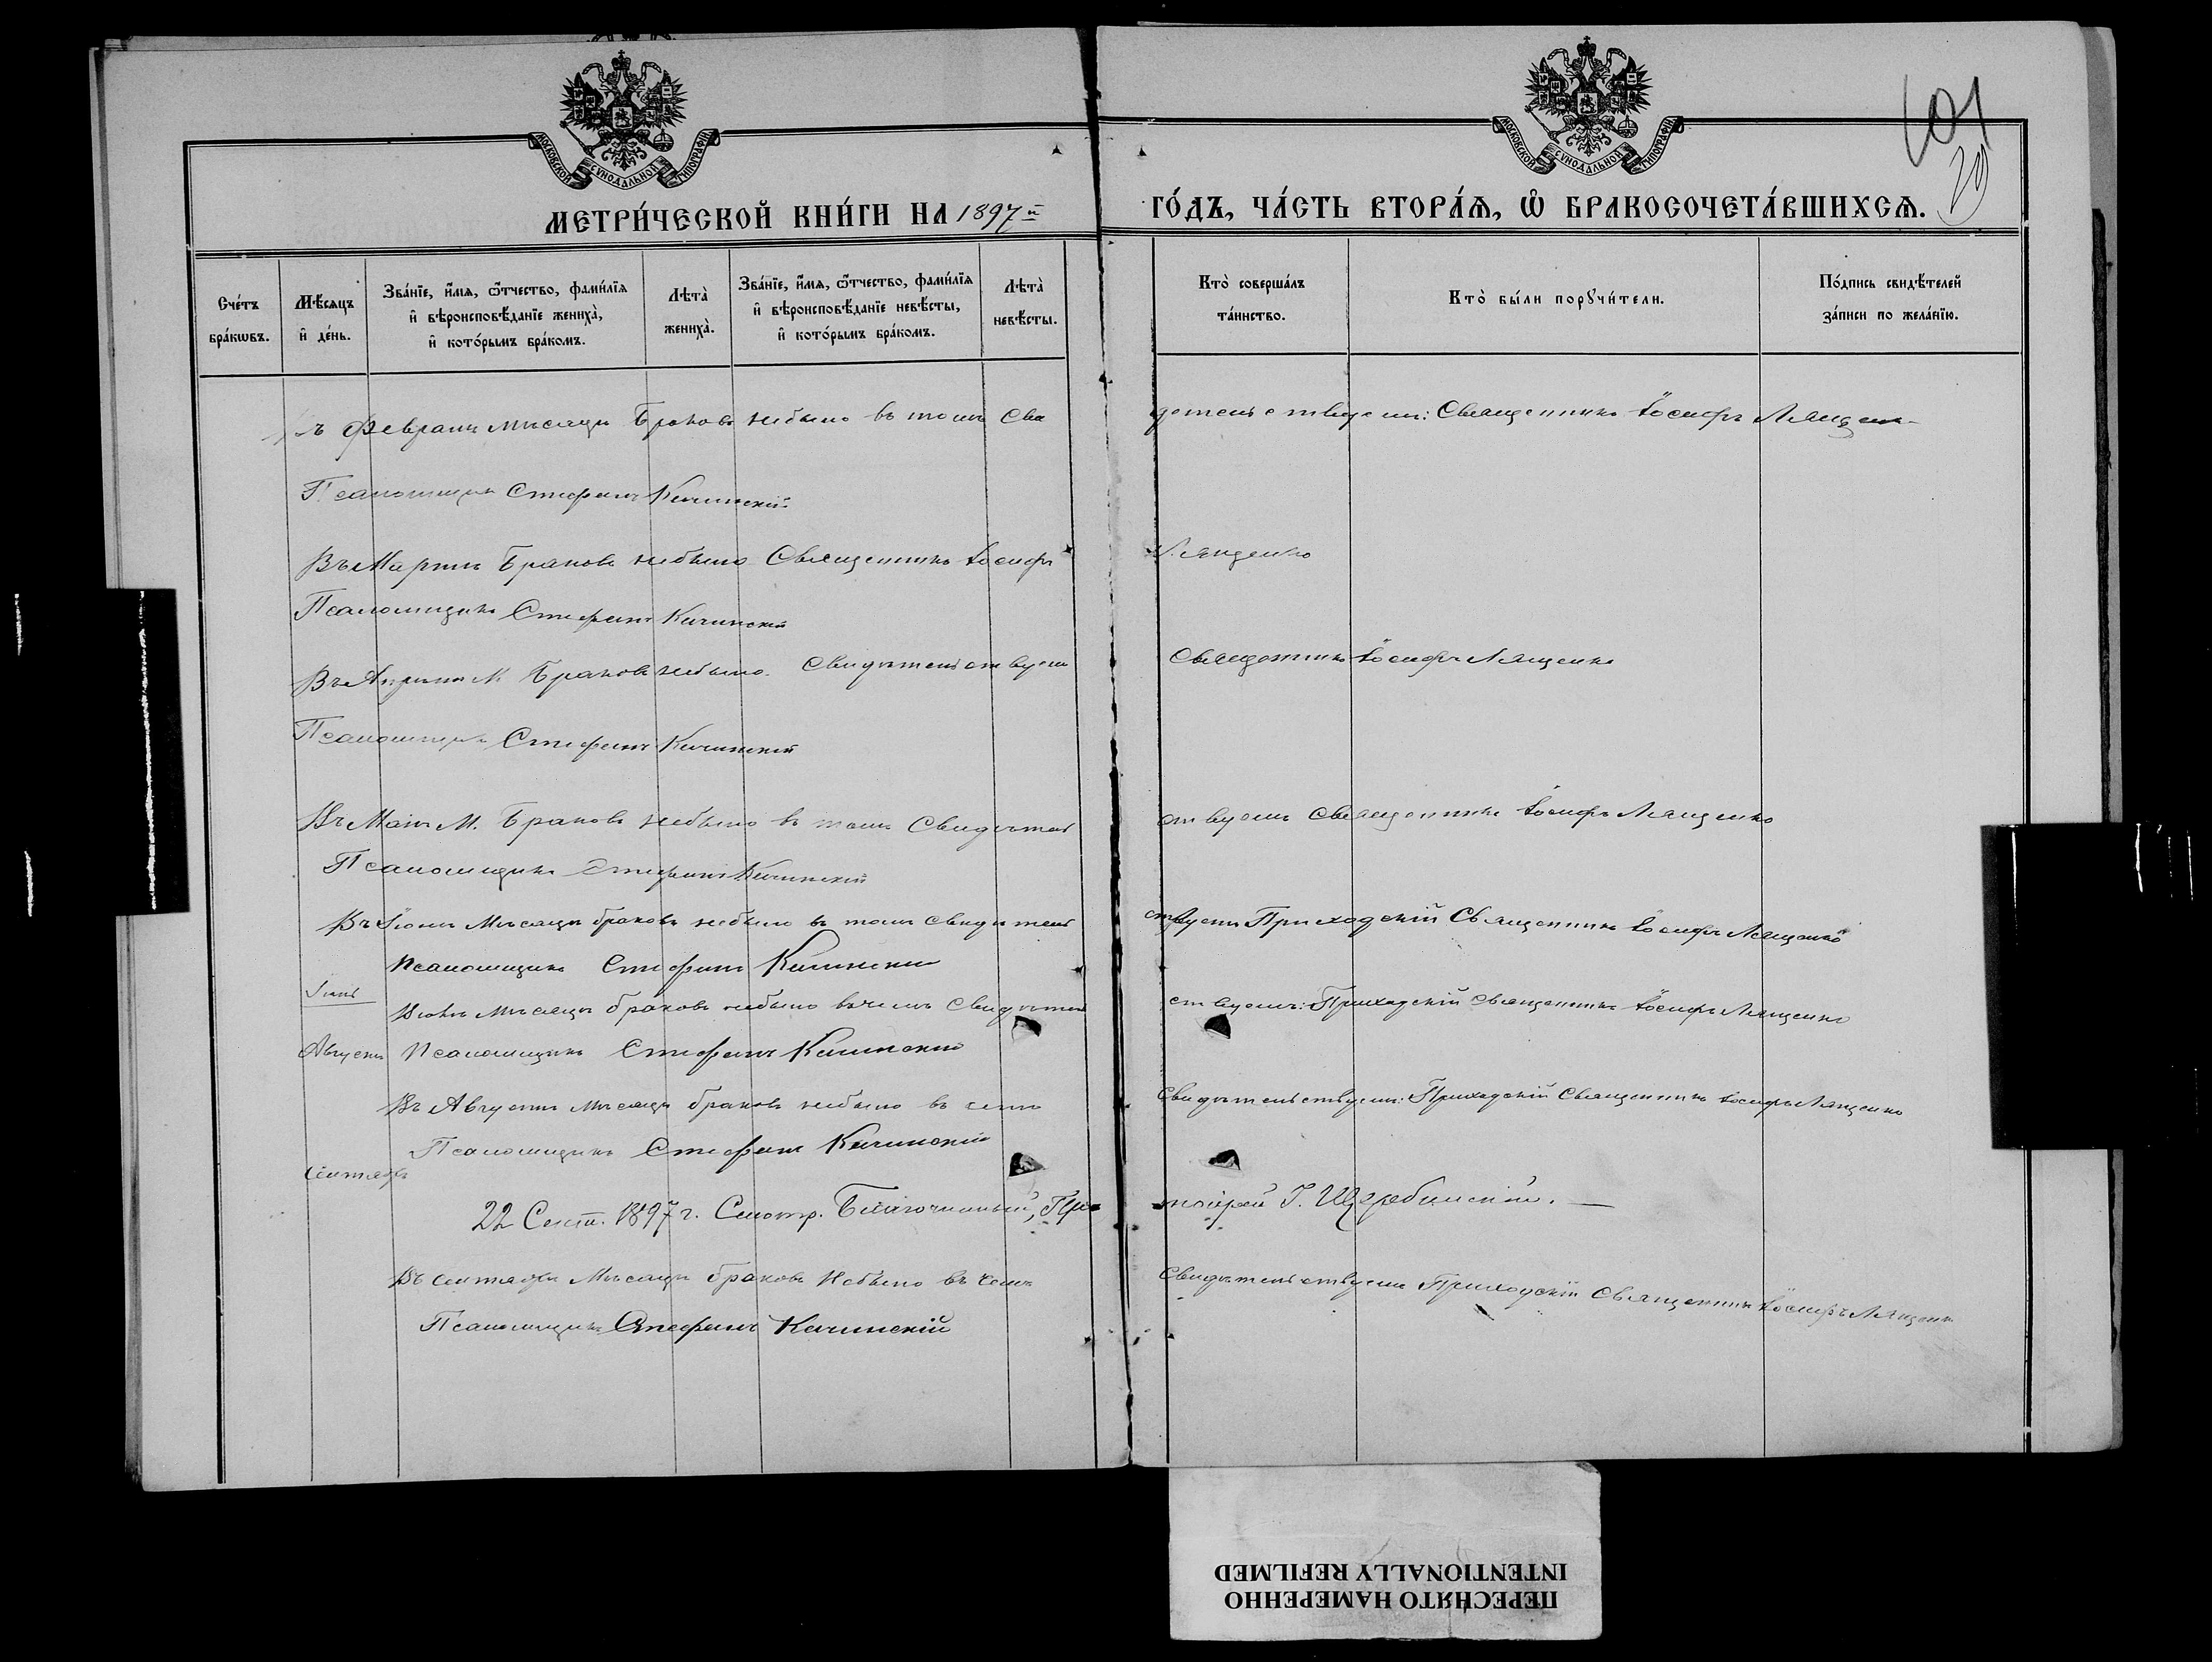 МОСКОВСКОЙ СУНОДАЛЬНОЙ ТИПОГРАФІИ
МОСКОВСКОЙ СУНОДАЛЬНОЙ ТИПОГРАФІИ
101
20
МЕТРИ́ЧЕСКОЙ КНИ́ГИ НА 1897й ГО́ДЪ, ЧА́СТЬ ВТОРА́Ѧ, Ѡ БРАКОСОЧЕТА́ВШИХСѦ.
Сче́тъ бра́кωвъ.
Мѣ́сѧцъ и҆ де́нь.
Зва́нїе, и҆́мѧ, ѻ҆́тчество, фами́лїѧ и҆ вѣроисповѣ́данїе жениха̀, и҆ кото́рымъ бра́комъ.
Лѣта̀ жениха̀.
Зва́нїе, и҆́мѧ, ѻ҆́тчество, фами́лїѧ и҆ вѣроисповѣ́данїе невѣ́сты, и҆ кото́рымъ бра́комъ.
Лѣта̀ невѣ́сты.
Кто̀ соверша́лъ та́инство.
Кто̀ бы́ли порꙋчи́тели.
По́дпись свидѣ́телей за́писи по жела́нїю.
Въ Февралѣ мѣсяцѣ Браковъ небыло въ томъ Сви дѣтельствуемъ: Священникъ Іосифъ Лященко
Псаломщикъ Стефанъ Качинскій
Въ Мартѣ Браковъ небыло Священникъ Іосифъ Лященко
Псаломщикъ Стефанъ Качинскій
Въ Апрѣлѣ М. Браковъ небыло. Свидѣтельствуемъ Священникъ Іосифъ Лященко
Псаломщикъ Стефанъ Качинскій
Въ Маѣ М. Браковъ небыло въ томъ Свидѣтель ствуемъ Священникъ Іосифъ Лященко
Псаломщикъ Стефанъ Качинскій
Въ Іюнѣ Мѣсяцѣ браковъ небыло въ томъ свидѣтель ствуемъ Приходскій Священникъ Іосифъ Лященко
Псаломщикъ Стефанъ Качинскій
Іюль
Въ Іюлѣ Мѣсяцѣ браковъ небыло въ чемъ Свидѣтель ствуемъ: Приходскій Священникъ Іосифъ Лященко
Августъ Псаломщикъ Стефанъ Качинскій
Въ Августѣ Мѣсяцѣ браковъ небыло въ чемъ Свидѣтельствуемъ: Приходскій Священникъ Іосифъ Лященко
Псаломщикъ Стефанъ Качинскій
Сентябрь
22 Сент. 1897 г. Смотр. Благочинный, Про тоіерей І. Щербинскій.
Въ сентябрѣ Мѣсяцѣ браковъ Небыло въ чемъ Свидѣтельствуемъ Приходскій Священникъ Іосифъ Лященко
Псаломщикъ Стефанъ Качинскій
ПЕРЕСНЯТО НАМЕРЕННО
INTENTIONALLY REFILMED